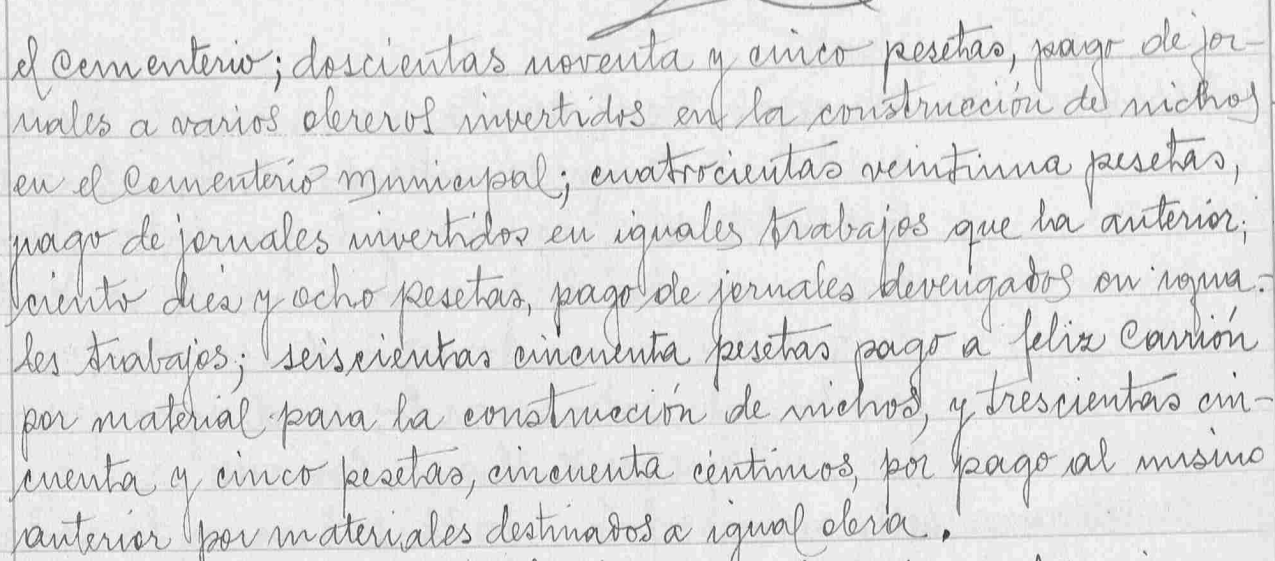 el Cementerio; doscientas noventa y cinco pesetas, pago de jor-
nales a varios obreros invertidos en la construcción de nichos
en el Cementerio Municipal; cuatrocientas veintiuna pesetas,
pago de jornales invertidos en iguales trabajos que la anterior;
ciento diez y ocho pesetas, pago de jornales devengados en igua-
les trabajos; seiscientas cincuenta pesetas pago a feliz Carrión
por material para la construcción de nichos, y trescientas cin-
cuenta y cinco pesetas, cincuenta céntimos, por pago al mismo
anterior por materiales destinados a igual obra.